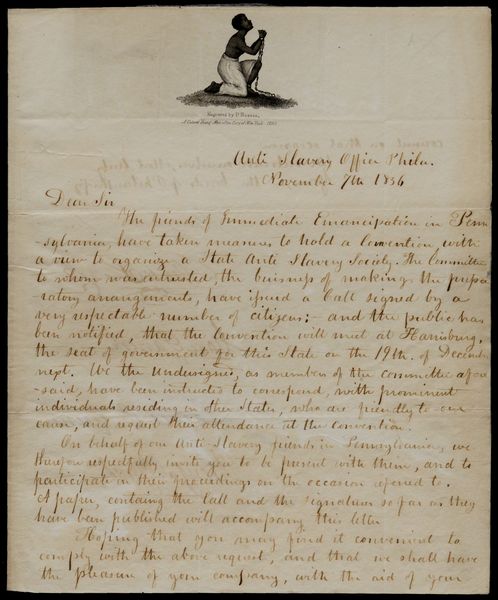 Engraved by P. Reason,
A Colored Young Man of the City of New York 1835
Anti Slavery Office Phila.
November 7th 1836
Dear Sir
The friends of Immediate Emancipation in Penn
-sylvania, have taken measures to hold a Convention, with
a view to organize a State Anti Slavery Society. The Committee
to whom was intrusted, the buisness of making the prepa-
ratory arrangements, have issued a Call signed by a
very respectable number of citizens;- and the public has
been notified, that the Convention will meet at Harrisburg,
the seat of government for this State on the 19th. of December
next. We the Undersigned, as member of the committee afore
-said, have been instructed to correspond, with prominent
individuals residing in other States, who are friendly to our
cause, and request their attendance at the Convention.
On behalf of our Anti-Slavery friends in Pennsylvania, we
therefore respectfully invite you to be present with them, and to
participate in their proceedings on the occasion refered to.
A paper, containg the Call and the signatures so far as they
have been published will accompany this letter
Hoping that you may find it convenient to
comply with the above request, and that we shall have
the pleasure of your company, with the aid of your